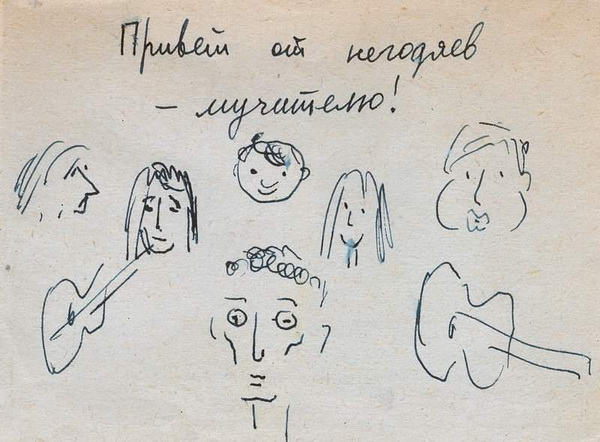 Привет от негодяев
– мучителю!